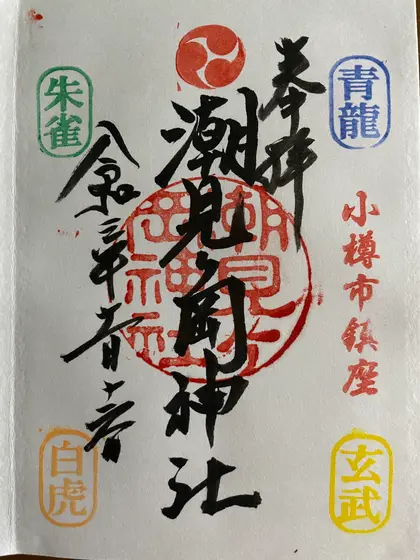 青龍
奉拝
小樽市鎮座
玄武
潮見ヶ岡神社
潮見ヶ
岡神社
朱雀
令和三年
白虎